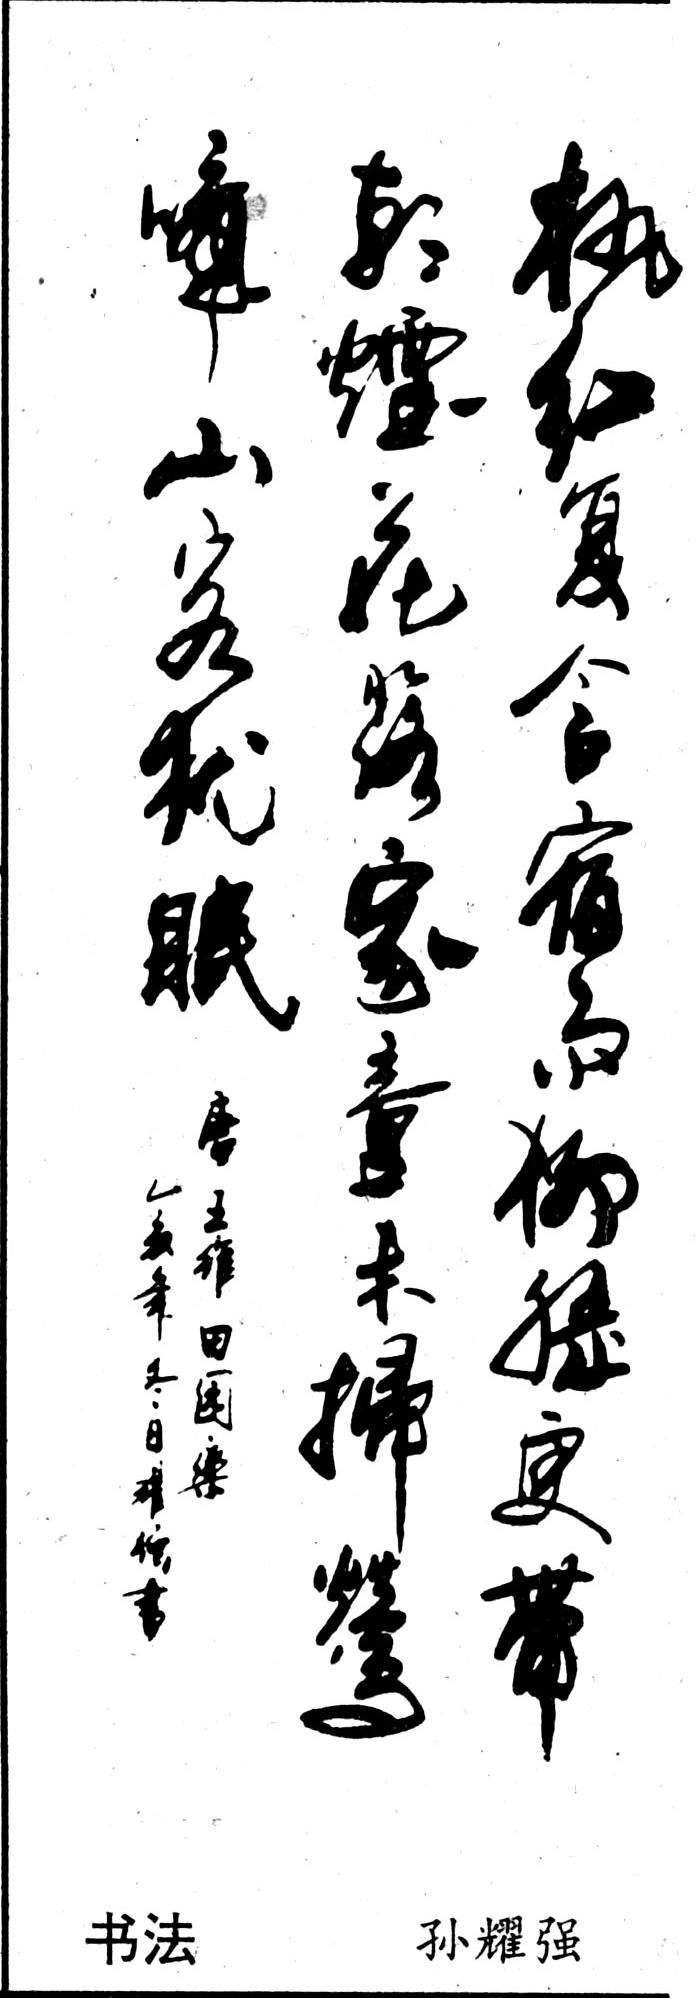 桃红复含宿雨柳绿更带
朝煙花落家童未掃鶯
啼山客犹眠
唐王维田園樂
乙亥年冬日 书
书法
孙耀强